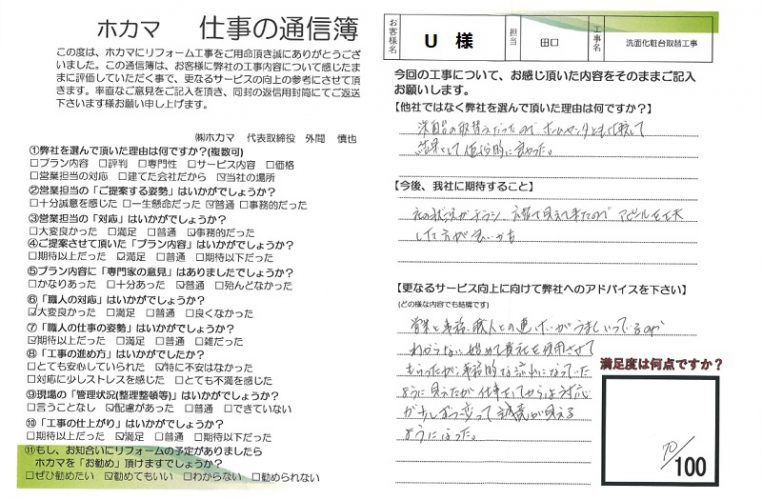 ホカマ 仕事の通信簿
この度は、ホカマにリフォーム工事をご用命頂き誠にありがとうござ
いました。この通信簿は、お客様に弊社の工事内容について感じたま
まに評価していただく事で、更なるサービスの向上の参考にさせて頂
きます。率直なご意見をご記入を頂き、同封の返信用封筒にてご返送
下さいます様お願い申し上げます。
㈱ホカマ 代表取締役 外間 慎也
①弊社を選んで頂いた理由は何ですか?(複数可)
□プラン内容 □評判 □専門性 □サービス内容 □価格
□営業担当の対応 □建てた会社だから ☑当社の場所
②営業担当の「ご提案する姿勢」はいかがでしょうか?
□十分誠意を感じた □一生懸命だった ☑普通 □事務的だった
③営業担当の「対応」はいかがでしょうか?
□大変良かった □満足 □普通 ☑事務的だった
④ご提案させて頂いた「プラン内容」はいかがでしょうか?
□期待以上だった ☑満足 □普通 □期待以下だった
⑤プラン内容に「専門家の意見」はありましたでしょうか?
□かなりあった □十分あった ☑普通 □殆んどなかった
⑥「職人の対応」はいかがでしょうか?
☑大変良かった □満足 □普通 □良くなかった
⑦「職人の仕事の姿勢」はいかがでしょうか?
☑期待以上だった □満足 □普通 □雑だった
⑧「工事の進め方」はいかがでしたか?
□とても安心していられた ☑特に不安はなかった
□対応に少しストレスを感じた □とても不満を感じた
⑨現場の「管理状況(整理整頓等)」はいかがでしょうか?
□言うことなし ☑配慮があった □普通 □できていない
⑩「工事の仕上がり」はいかがでしょうか?
□期待以上だった ☑満足 □普通 □期待以下だった
⑪もし、お知合いにリフォームの予定がありましたら
ホカマを「お勧め」頂けますでしょうか?
□ぜひ勧めたい ☑勧めてもいい □わからない □勧められない
お客様名 U 様 担当 田口 工事名 洗面化粧台取替工事
今回の工事について、お感じ頂いた内容をそのままご記入
お願いします。
【他社ではなく弊社を選んで頂いた理由は何ですか?】
洗面台の取替えだったのでホームセンターとも比較して
結果として価格的に良かった。
【今後、我社に期待すること】
した方が良いかも
【更なるサービス向上に向けて弊社へのアドバイスを下さい】
(どの様な内容でも結構です)
営業と事務、職人との連けいがうまくいっているのか
わからない。始めて貴社を利用させて
もらったが、事務的な流れになっていた
ように見えたが仕事をしてからは対応
が少しずつ変って誠意が見える
ようになった。
満足度は何点ですか?
70/100